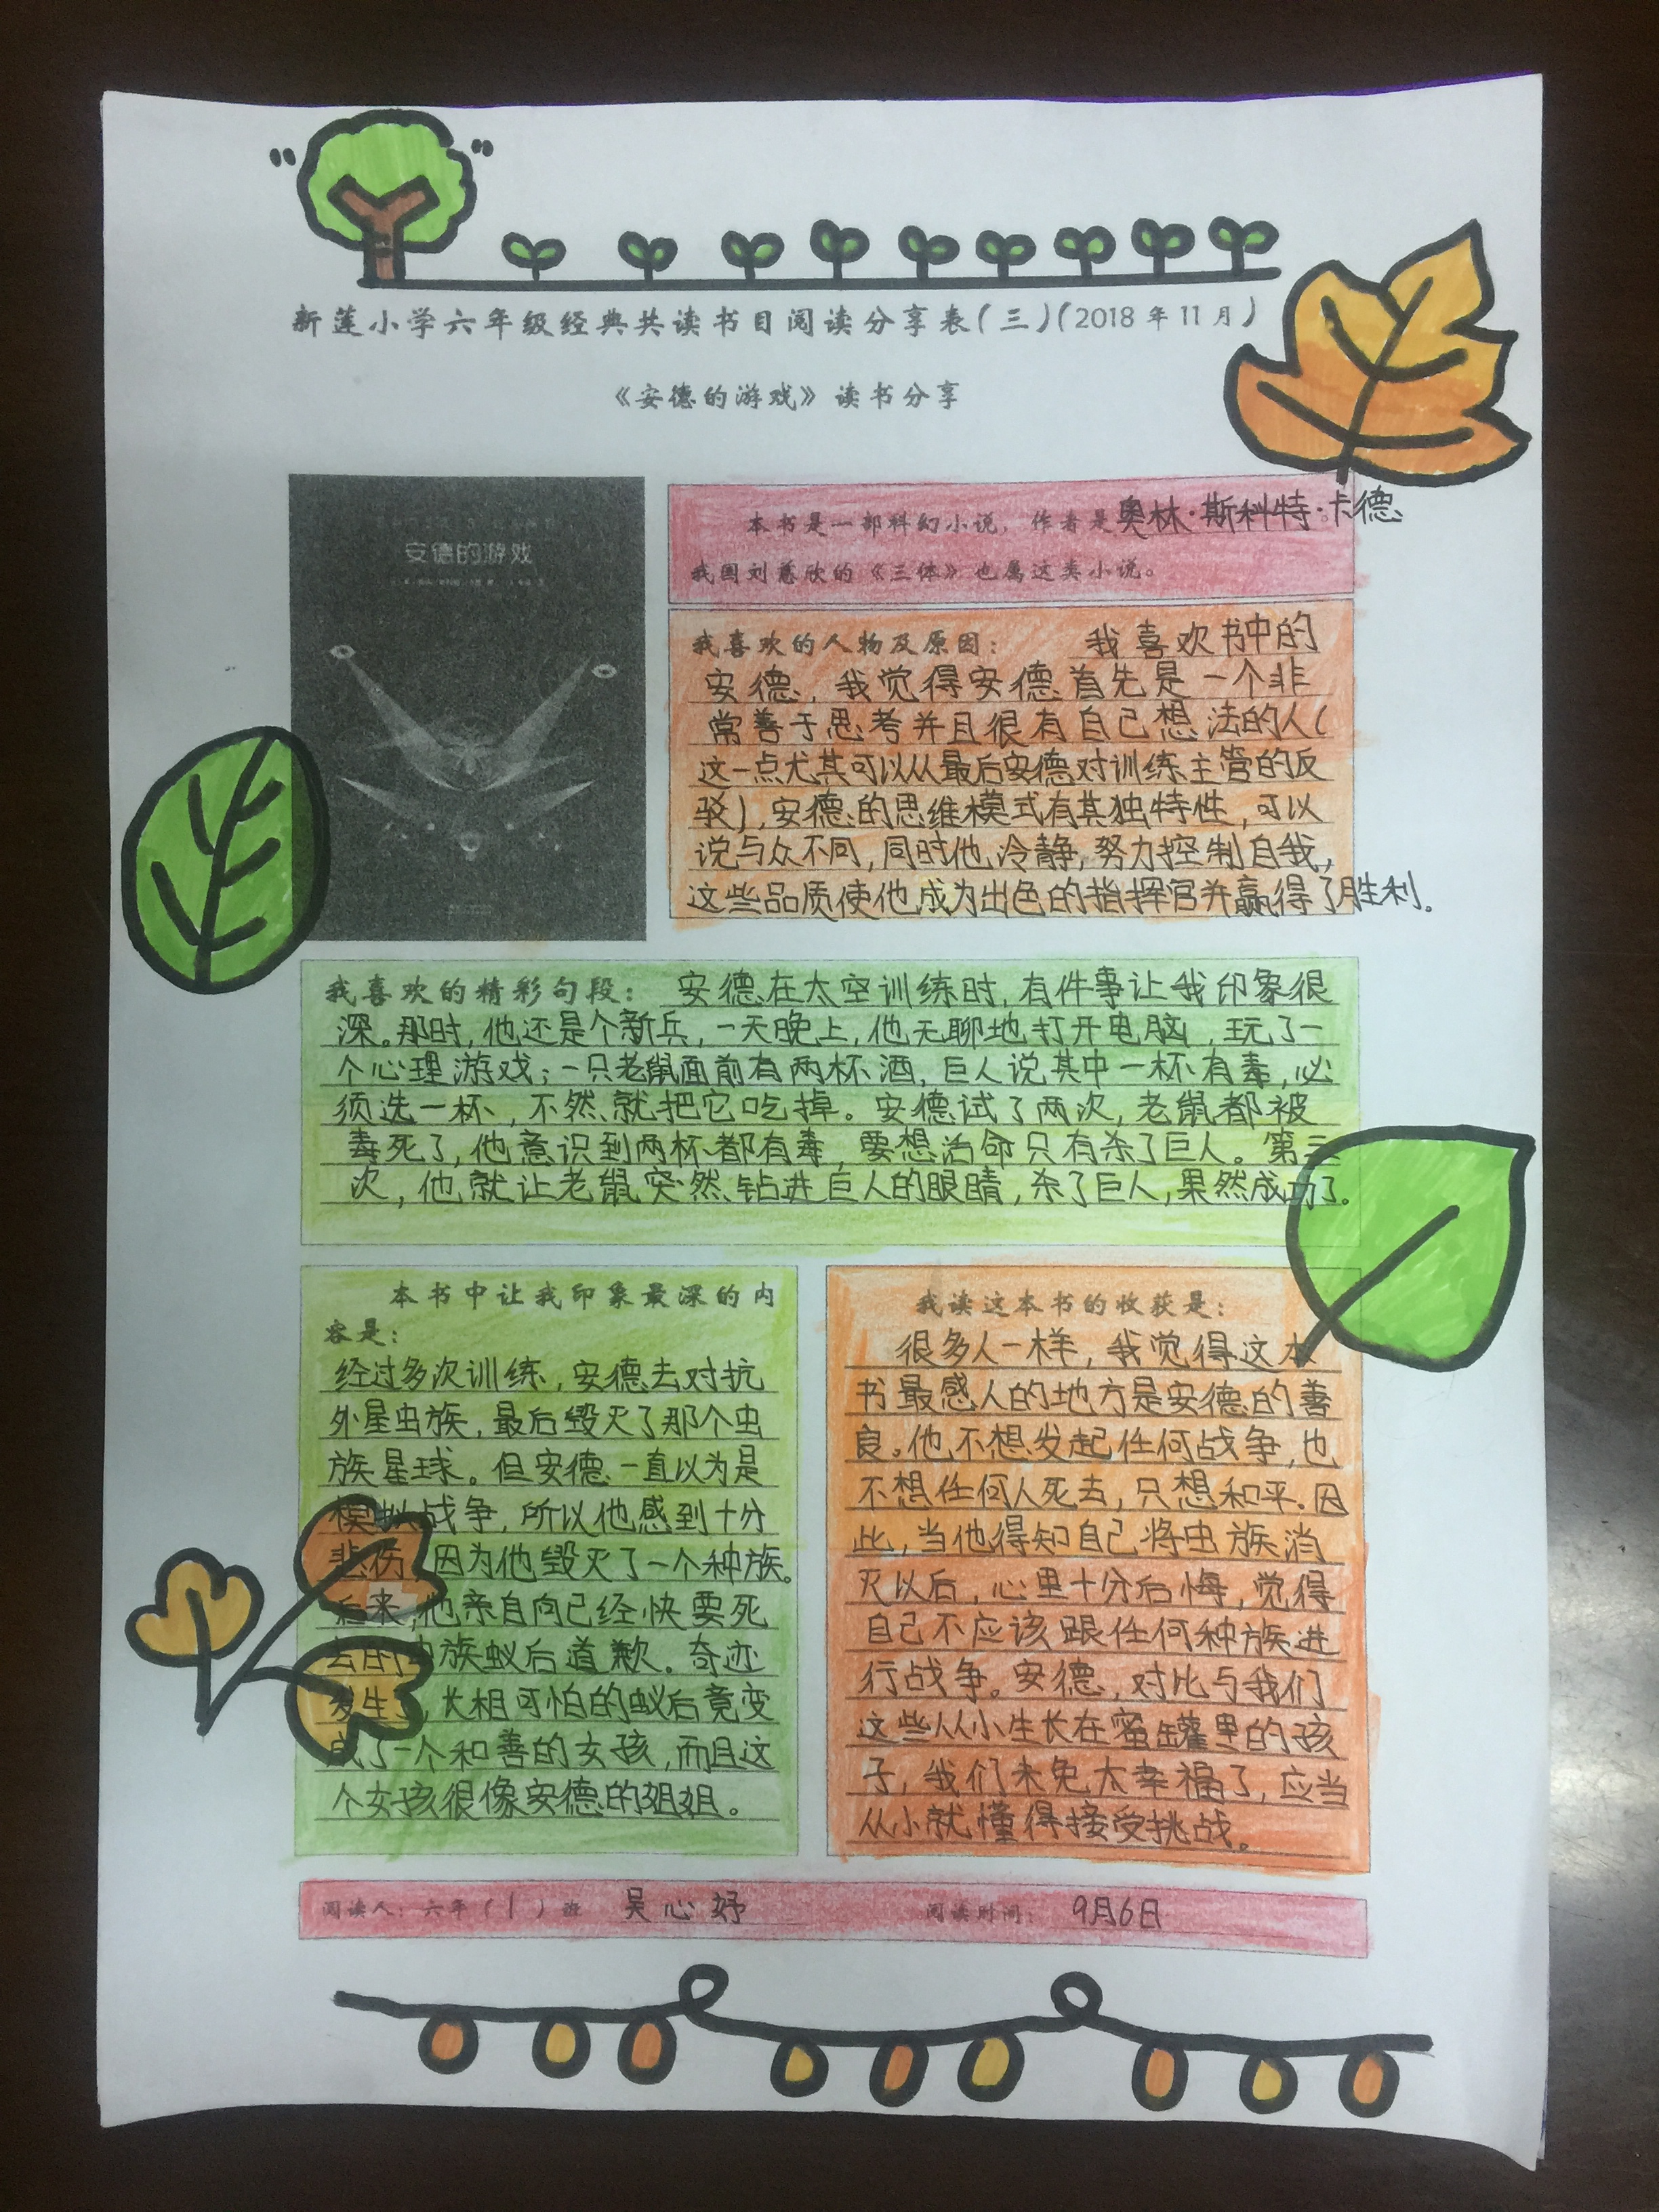 新莲小学六年级经典共读书目阅读分享表(三)(2018年11月)
《安德的游戏》读书分享
安德的游戏
本书是一部科幻小说,作者是奥林·斯科特·卡德
我国刘慈欣的《三体》也属这类小说。
我喜欢的人物及原因: 我喜欢书中的
安德,我觉得安德首先是一个非
常善于思考并且很有自己想法的人(
这一点尤其可以从最后安德对训练主管的反
驳),安德的思维模式有其独特性,可以
说与众不同,同时他冷静,努力控制自我,
这些品质使他成为出色的指挥官并赢得了胜利。
我喜欢的精彩句段: 安德在太空训练时,有件事让我印象很
深。那时,他还是个新兵,一天晚上,他无聊地打开电脑,玩了一
个心理游戏;一只老鼠面前有两杯酒,巨人说其中一杯有毒,必
须选一杯,不然就把它吃掉。安德试了两次,老鼠都被
毒死了,他意识到两杯都有毒,要想活命只有杀了巨人。第三
次,他就让老鼠突然钻进巨人的眼睛,杀了巨人,果然成功了。
本书中让我印象最深的内
容是:
经过多次训练,安德去对抗
外星虫族,最后毁灭了那个虫
族星球。但安德一直以为是
模拟战争,所以他感到十分
悲伤,因为他毁灭了一个种族。
后来,他亲自向已经快要死
去的虫族蚁后道歉。奇迹
发生了,长相可怕的蚁后竟变
成了一个和善的女孩,而且这
个女孩很像安德的姐姐。
我读这本书的收获是:
很多人一样,我觉得这本
书最感人的地方是安德的善
良。他不想发起任何战争,也
不想任何人死去,只想和平。因
此,当他得知自己将虫族消
灭以后,心里十分后悔,觉得
自己不应该跟任何种族进
行战争。安德,对比与我们
这些从小生长在蜜罐里的孩
子,我们未免太幸福了,应当
从小就懂得接受挑战。
阅读人:六年(1)班 吴心妤 阅读时间: 9月6日